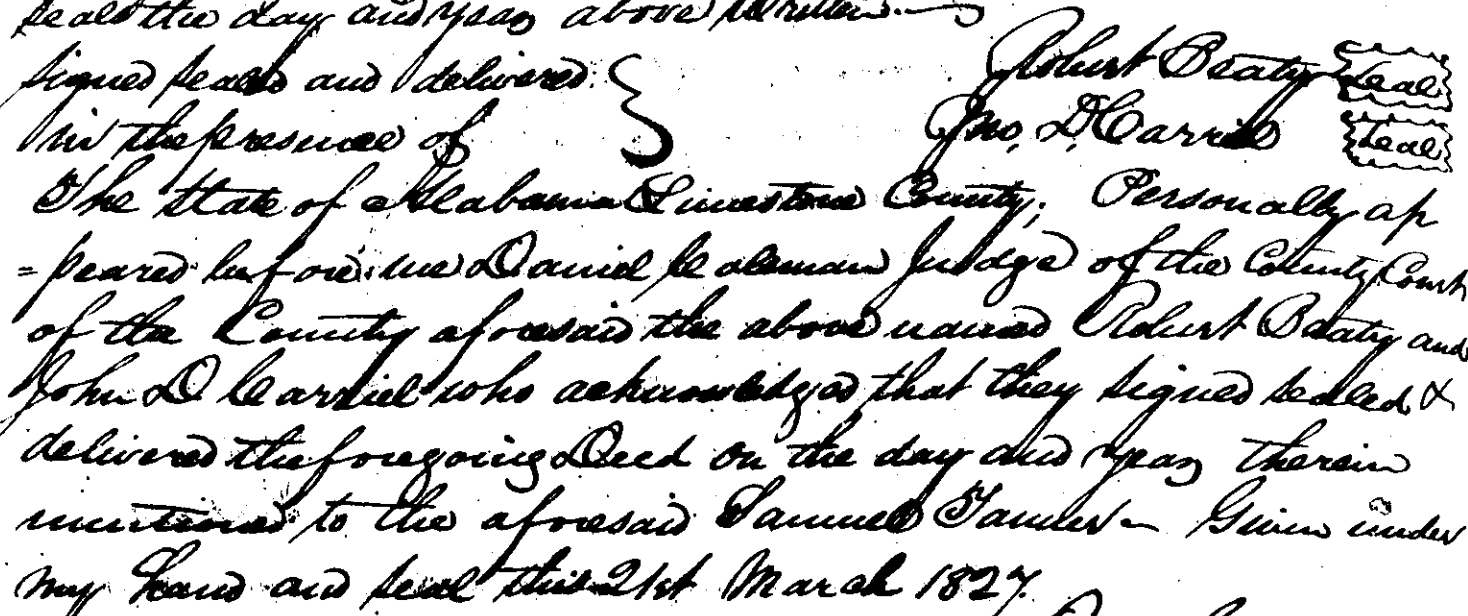 seals the day and year above written.
Signed sealed and delivered Robert Beaty Seal
in the presence of Jno. D. Carriel Seal
The State of Alabama Limestone County. Personally ap
=peared before me Daniel Coleman Judge of the County Court
of the County aforesaid the above named Robert Beaty and
John D Carriel who acknowledged that they signed sealed &
delivered the foregoing Deed on the day and year therein
mentioned to the aforesaid Samuel Tanner Given under
my hand and seal this 21st March 1827.